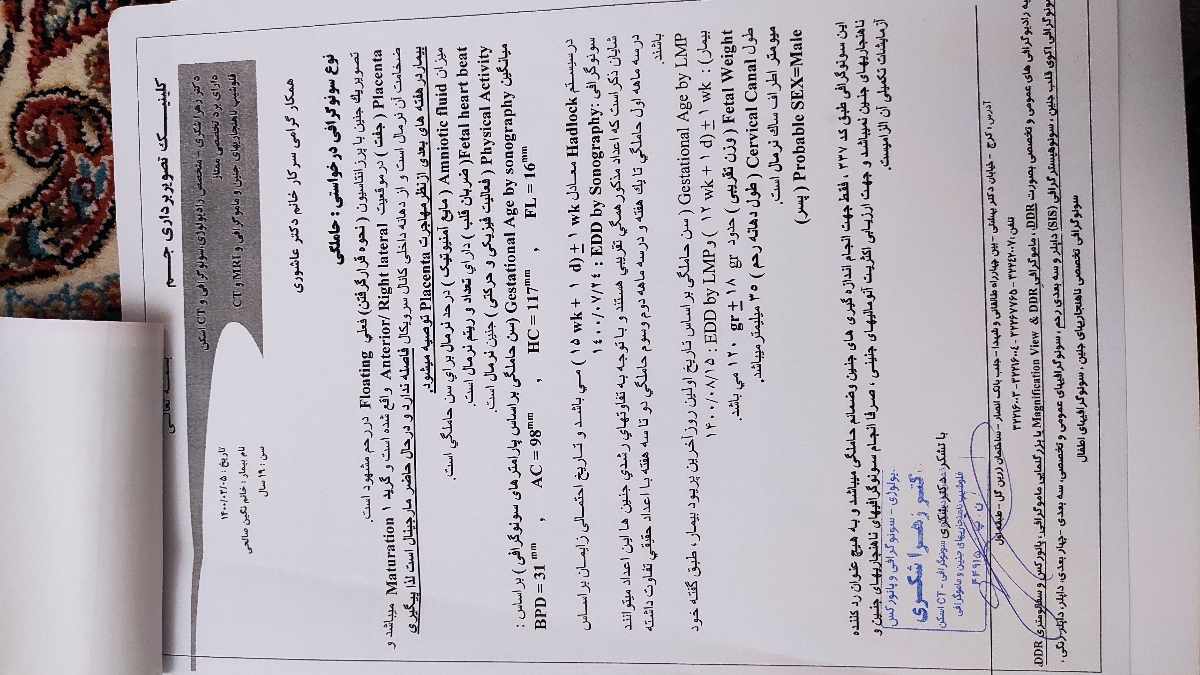 بسمه تعالی
کلینیک تصویربرداری جم
دکتر زهرا شکری - متخصص رادیولوژی، سونوگرافی و CT اسکن
دارای برد تخصصی ممتاز
فلوشیپ ناهنجاریهای جنین و ماموگرافی و MRI و CT
تاریخ : ۱۴۰۰/۰۲/۰۵
نام بیمار : خانم نگین صالحی
سن : ۱۹ سال
همکار گرامی سرکار خانم دکتر عاشوری
نوع سونوگرافی درخواستی : حاملگی
تصویر یك جنین با پرزانتاسیون ( نحوه قرارگرفتن) فعلي Floating در رحم مشهود است.
Placenta ( جفت ) در موقعیت Anterior/ Right lateral واقع شده است و گرید ۱ Maturation میباشد و
ضخامت آن نرمال است و از دهانه داخلی کانال سرویکال فاصله ندارد و درحال حاضر مارجینال است لذا پیگیری
بیمار در هفته های بعدی ازنظر مهاجرت Placenta توصیه میشود.
میزان Amniotic fluid ( مایع آمنیوتیک ) درحد نرمال برای سن حاملگي است.
Fetal heart beat( ضربان قلب ) دارای تعداد و ریتم نرمال است.
Physical Activity ( فعالیت فیزیکی و حرکتی ) جنین نرمال است.
میانگین Gestational Age by sonography (سن حاملگی براساس پارامترهای سونوگرافی ) براساس :
BPD = 31 mm , AC = 98mm , HC = 117mm , FL = 16mm
در سیستم Hadlock معادل ( ۱۵ wk + ۱ d) ± ۱ wk مي باشد و تاریخ احتمالی زایمان براساس
سونوگرافی :EDD by Sonography : ۱۴۰۰/۰۷/۲۴
شایان ذکر است که اعداد مذکور همگي تقریبي هستند و با توجه به تفاوتهاي رشدي جنین ها این اعداد میتوانند
درسه ماهه اول حاملگي تا یك هفته و درسه ماهه دوم وسوم حاملگي دو تا سه هفته با اعداد حقیقي تفاوت داشته
باشند
Gestational Age by LMP (سن حاملگی براساس تاریخ اولین روز آخرین پریود بیمار، طبق گفته خود
بیمار) : ( ۱۲ wk + ۱ d) ± ۱ wk و EDD by LMP : ۱۴۰۰/۰۸/۱۵
Fetal Weight ( وزن تقریبی ) حدود ۱۲۰ gr ± ۱۸ gr می باشد.
طول Cervical Canal ( طول دهانه رحم ) ۳۵ میلیمتر میباشد.
میومتر اطراف ساک نرمال است.
Probable SEX=Male ( پسر)
این سونوگرافی طبق کد ۲۳۷ ، فقط جهت انجام اندازه گیری های جنین وضمائم حاملگی میباشد و به هیچ عنوان رد کننده
ناهنجاریهای جنین نمیباشد و جهت ارزیابی اکثریت آنومالیهای جنینی ، صرفا انجام سونوگرافیهای ناهنجاریهای جنین و
آزمایشات تکمیلی آن الزامیست.
با تشکر دکتر شکری
دکتر زهرا شکری
سونوگرافی - CT اسکن
فلوشیپ ناهنجاریهای جنین و ماموگرافی
آدرس : کرج - خیابان دکتر بهشتی - بین چهارراه طالقانی و شهدا - جنب بانک انصار - ساختمان زرین گل - طبقه اول
تلفن : ۳۲۲۴۷۰۰۷ - ۳۲۲۶۷۷۶۵ - ۳۲۲۱۶۰۰۴ - ۳۲۲۱۶۰۰۳
رادیوگرافی های عمومی و تخصصی بصورت DDR، ماموگرافی DDR & Magnification View یا بزرگنمایی ماموگرافی، پانورکس و سفالومتری DDR
سونوگرافی اکوی قلب جنین ، سونوهیستروگرافی (SIS) داپلر و سه بعدی رحم ، سونوگرافیهای عمومی و تخصصی، سه بعدی - چهار بعدی، داپلر، داپلر رنگی ،
سونوگرافی تخصصی ناهنجاریهای جنین ، سونوگرافیهای اطفال